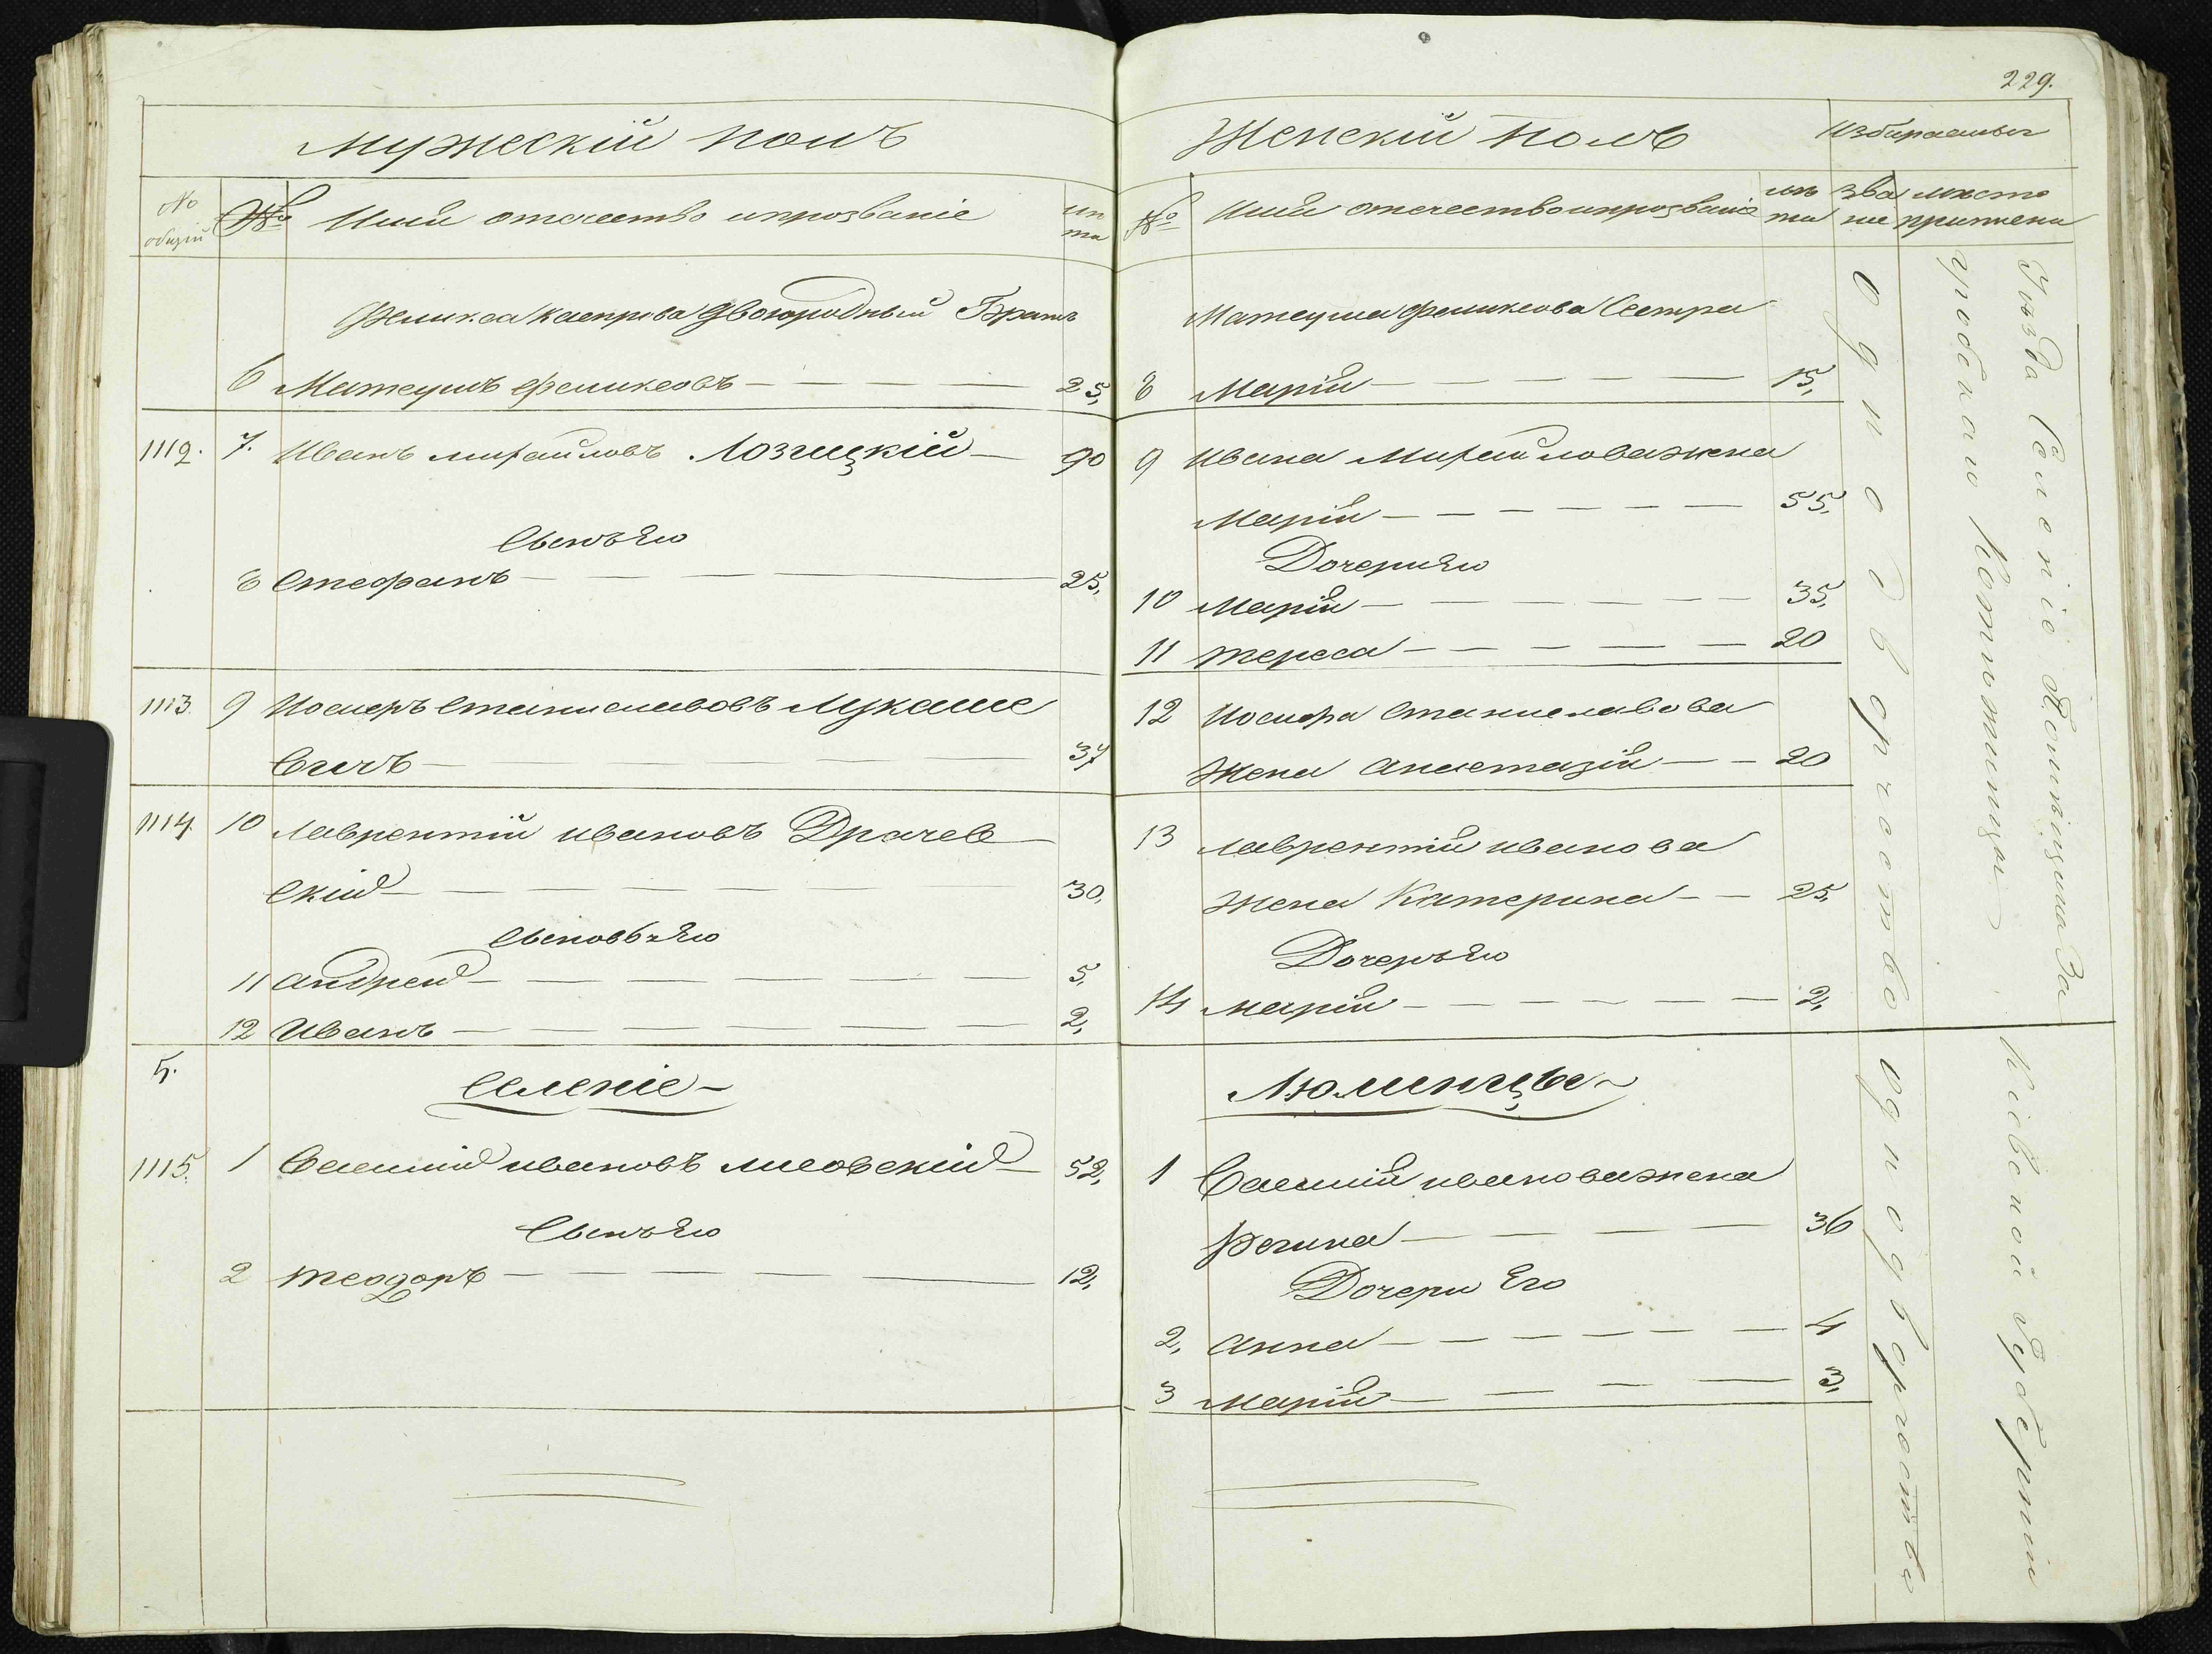 229.
Мужескій полъ
№ общій
№
Имя отечество и прозваніе
лѣта
Феликса Каспрова Двоюродный Братъ
6 Матеушъ Феликсовъ — 25,
1112. 7. Иванъ Михайловъ Лозицкій — 90
Сынъ Его
8 Стефанъ — 25,
1113. 9 Иосифъ Станиславовъ Лукаше
вичъ — 37
1114. 10 Лаврентій Ивановъ Драчев
скій — 30,
Сыновья Его
11 Андрей — 5,
12 Иванъ — 2,
5.
Селеніе
1115. 1 Василій Ивановъ Лисовскій — 52,
Сынъ Его
2 Теодоръ — 12,
Женскій полъ
Избираемые
№
Имя отечество и прозваніе
лѣта
званіе
мѣсто
Матеуша Феликсова Сестра
8 Марія — 15,
9 Ивана Михайлова жена
Марія — 55,
Дочери Его
10 Марія — 35,
11 Тереса — 20
12 Иосифа Станиславова
Жена Анастазія — 20
13 Лаврентія Иванова
Жена Катерина — 25,
Дочеръ Его
14 Марія — 2,
Люлинцы
1 Василія Иванова жена
Регина — 36
Дочери Его
2, Анна — 4
3 Марія — 3,
Однодворчество
Уѣзда Селеніе
Однодворчество
Кіевской Губерніи